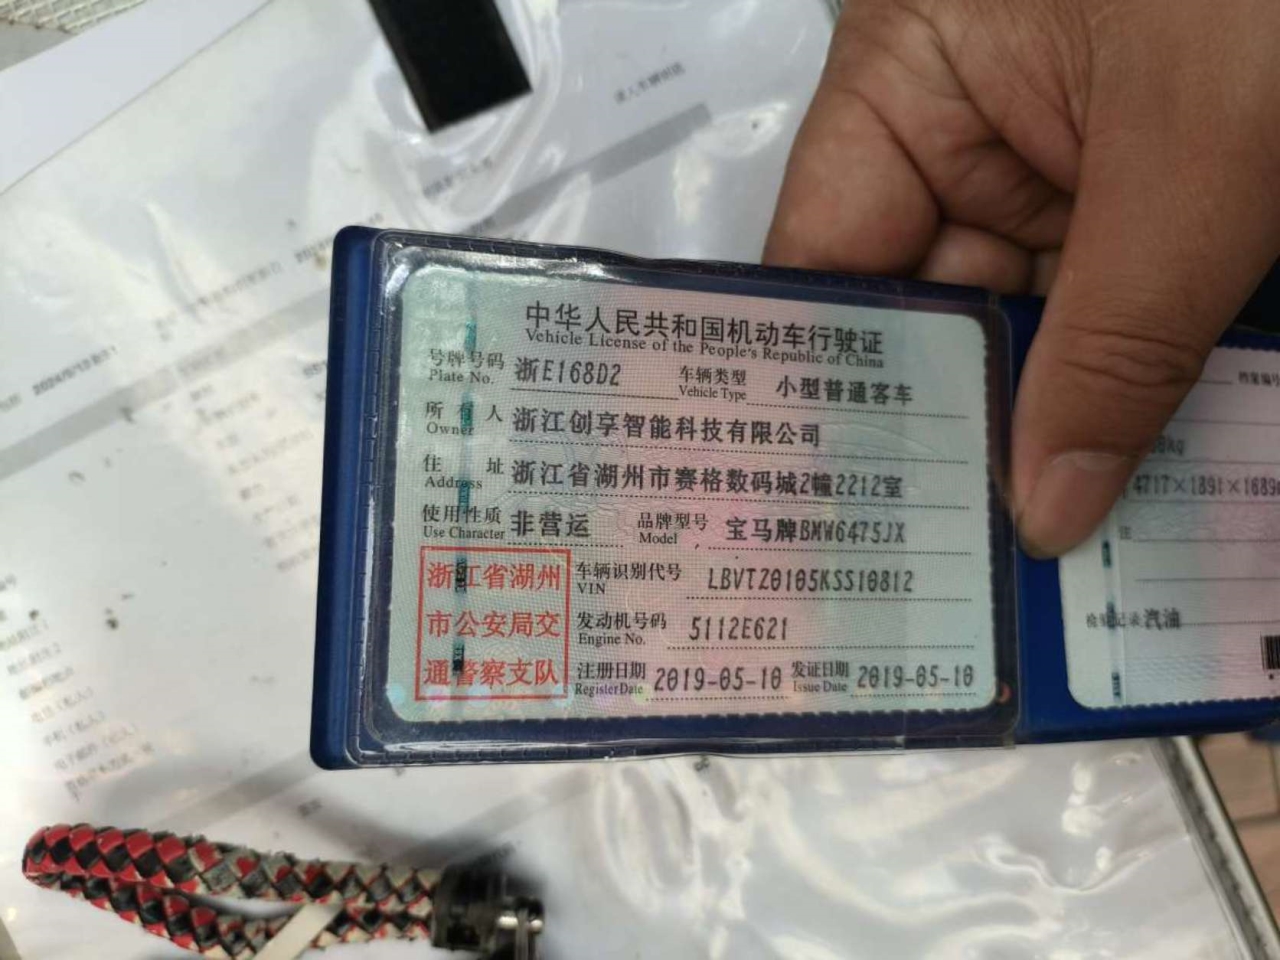 中华人民共和国机动车行驶证
Vehicle License of the People's Republic of China
号牌号码 浙E168D2 车辆类型 小型普通客车
Plate No. Vehicle Type
所有人 浙江创享智能科技有限公司
Owner
住址 浙江省湖州市赛格数码城2幢2212室
Address
使用性质 非营运 品牌型号 宝马牌BMW6475JX
Use Character Model
浙江省湖州
市公安局交
通警察支队
车辆识别代号 LBVTZ0105KSS10812
VIN
发动机号码 5112E621
Engine No.
注册日期 2019-05-10 发证日期 2019-05-10
Register Date Issue Date
档案编号
kg
4717×1891×1689
注
检验记录 汽油